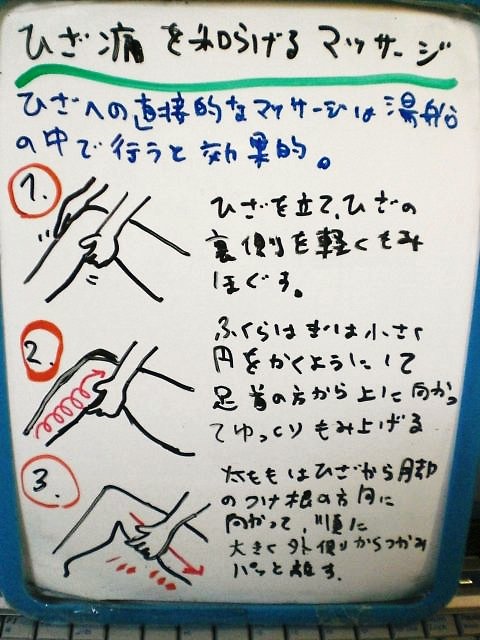 ひざ痛を和らげるマッサージ
ひざへの直接的なマッサージは湯船
の中で行うと効果的。
1.
ひざを立て、ひざの
裏側を軽くもみ
ほぐす。
2.
ふくらはぎは小さく
円をかくようにして
足首の方から上に向かっ
てゆっくりもみ上げる
3.
太ももはひざから脚
のつけ根の方向に
向かって、順に
大きく外側からつかみ
パッと離す.